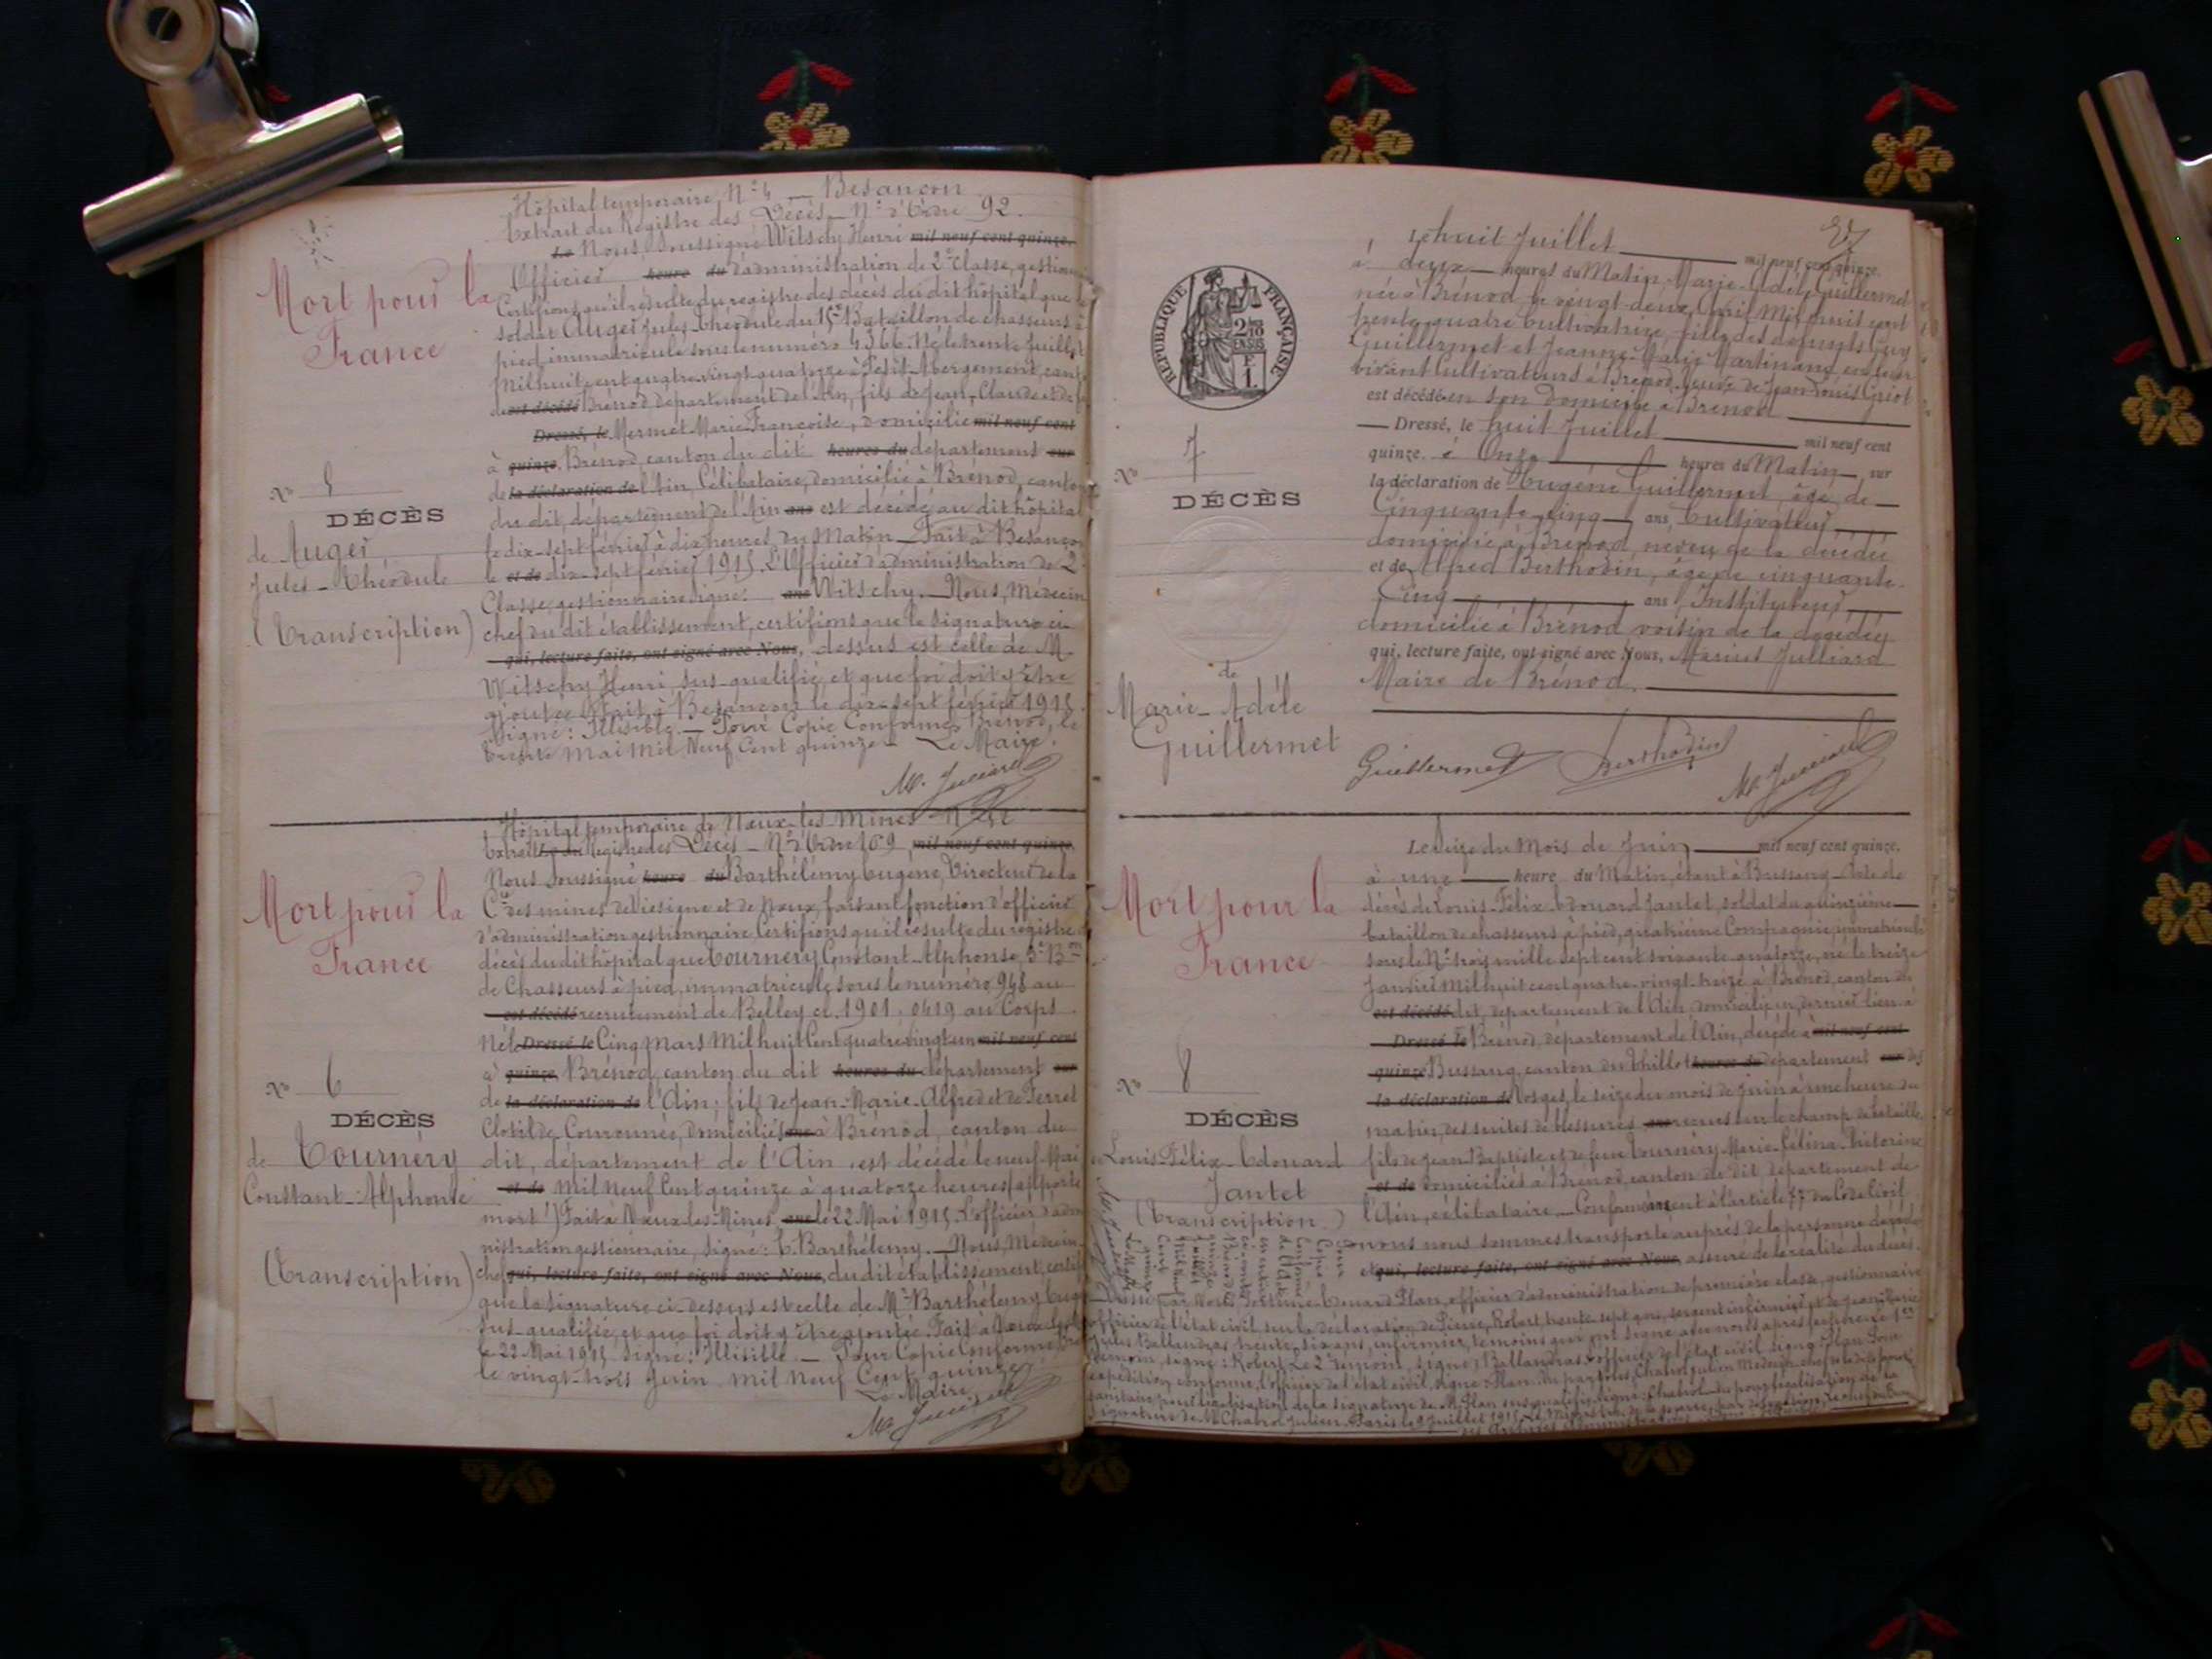 Hôpital temporaire N° 4 — Besançon
Extrait du Registre des Décès — N° d'Ordre 92.
Le Nous Soussigné Witschy Henri mil neuf cent quinze.
Mort pour la
France
Officier heure du d'administration de 2e Classe, gestionnaire
Certifions qu'il résulte du registre des décès du dit hôpital que le
soldat Auger Jules-Théodule du 15e Bataillon de chasseurs à
pied, immatriculé sous le numéro 4366. Né le trente Juillet
Mil huit cent quatre-vingt quatorze à Petit-Abergement, canton
de est décédé Brénod département de l'Ain, fils de Jean-Claude et de
Dressé, le Mermet Marie Françoise, domicilié mil neuf cent
à quinze. Brénod, canton du dit heures du département sur
de la déclaration de l'Ain, Célibataire, domicilié à Brénod, canton
du dit, département de l'Ain ans est décédé au dit hôpital
le dix-sept février à dix heures du Matin — Fait à Besançon
le et de dix-sept février 1915. L'Officier d'administration de 2e
Classe, gestionnaire signé: ans Witschy. — Nous, Médecin
chef du dit établissement, certifions que la signature ci-
qui, lecture faite, ont signé avec Nous, dessus est celle de M.
Witschy Henri, sus-qualifié, et que foi doit y être
ajoutée. Fait à Besançon le dix-sept février 1915.
Signé: Illisible. — Pour Copie Conforme, Brénod, le
trente Mai Mil Neuf Cent quinze — Le Maire.
M. Julliard
No 5
DÉCÈS
de Auger
Jules-Théodule
(Transcription)
Hôpital temporaire de Nœux-les-Mines
Extrait Le du Registre des Décès — N° d'Ordre 169 mil neuf cent quinze.
Nous Soussigné heure du Barthélémy Eugène, Directeur de la
Mort pour la
France
Cie des mines de Vicoigne et de Nœux, faisant fonction d'officier
d'administration gestionnaire, Certifions qu'il résulte du registre des
décès du dit hôpital que Tournery Constant-Alphonse, 3e Bon
de Chasseurs à pied, immatriculé sous le numéro 948 au
est décédé recrutement de Belley cl. 1901. 0419 au Corps
Né le Dressé le Cinq Mars Mil huit Cent quatre vingt un mil neuf cent
à quinze Brénod, canton du dit heures du département sur
de la déclaration de l'Ain; fils de Jean-Marie-Alfred et de Ferret
Clotilde-Couronnée, domiciliés ans à Brénod, canton du
dit, département de l'Ain, est décédé le neuf Mai
et de Mil Neuf Cent quinze à quatorze heures (apporté
mort) Fait à Nœux-les-Mines, ans le 22 Mai 1915. L'officier d'admi-
nistration gestionnaire, Signé: E. Barthélemy. — Nous, Médecin-
chef qui, lecture faite, ont signé avec Nous, du dit établissement, certif
que la signature ci-dessus est celle de Mr Barthélemy Eug
sus-qualifié, et que foi doit y être ajoutée. Fait à Nœux-les-
le 22 Mai 1915 Signé: Illisible — Pour Copie Conforme,
le vingt-trois Juin Mil Neuf Cent quinze
Le Maire
M. Julliard
No 6
DÉCÈS
de Tournery
Constant-Alphonse
(Transcription)
Le huit Juillet mil neuf cent quinze.
à deux heures du Matin, Marie-Adèle Guillermet
née à Brénod le vingt-deux Avril Mil huit cent
trente-quatre Cultivatrice, fille des défunts Guy
Guillermet et Jeanne-Marie Martinand en leur
vivant Cultivateurs à Brénod, veuve de Jean-Louis Griot
est décédée en son domicile à Brénod
Dressé, le huit Juillet mil neuf cent
quinze. à Onze heures du Matin, sur
la déclaration de Eugène Guillermet, âgé de
Cinquante-cinq ans, Cultivateur
domicilié à Brénod, neveu de la décédée
et de Alfred Berthodin, âgé de cinquante-
Cinq ans, Instituteur
domicilié à Brénod, voisin de la décédée
qui, lecture faite, ont signé avec Nous, Marius Julliard
Maire de Brénod.
Guillermet Berthodin M. Julliard
RÉPUBLIQUE FRANÇAISE
No 7
DÉCÈS
de
Marie-Adèle
Guillermet
Le Seize du Mois de Juin mil neuf cent quinze.
à une heure du Matin, étant à Bussang — Acte de
Mort pour la
France
décès de Louis-Félix-Edouard Jantet, soldat du quinzième
bataillon de chasseurs à pied, quatrième Compagnie, immatriculé
sous le N° trois mille sept cent soixante quatorze, né le treize
Janvier Mil huit cent quatre-vingt-treize à Brénod, canton du
est décédé dit, département de l'Ain, domicilié en dernier lieu à
Dressé le Brénod, département de l'Ain, décédé à mil neuf cent
quinze Bussang, canton du Thillot heures du département sur des
la déclaration de Vosges, le seize du mois de Juin à une heure du
matin, des suites de blessures ans reçues sur le champ de bataille,
fils de Jean-Baptiste et de feue Tournery Marie-Célina-Victorine
et de domiciliés à Brénod, canton de dit, département de
l'Ain, célibataire. — Conformément à l'article 77 du Code Civil
nous nous sommes transporté auprès de la personne décédée
et qui, lecture faite, ont signé avec Nous, assuré de la réalité du décès.
Dressé par Nous Edouard Plan, officier d'administration de première classe, gestionnaire
officier de l'état civil, sur la déclaration de Pierre, Robert, trente sept ans, sergent infirmier, et de
Jules Ballandras trente-six ans, infirmier, témoins qui ont signé avec nous après lecture. Le 1er
témoin, signé: Robert. Le 2e témoin, signé: Ballandras. L'officier de l'état civil signé: Plan. Pour
expédition conforme, l'officier de l'état civil, signé: Plan.
sanitaire, pour légalisation de la signature de M. Plan sus qualifié, signé: Chabrol.
signature de Mr Chabrol Julien. Paris le 9 Juillet 1915.
No 8
DÉCÈS
Louis-Félix-Edouard
Jantet
(Transcription)